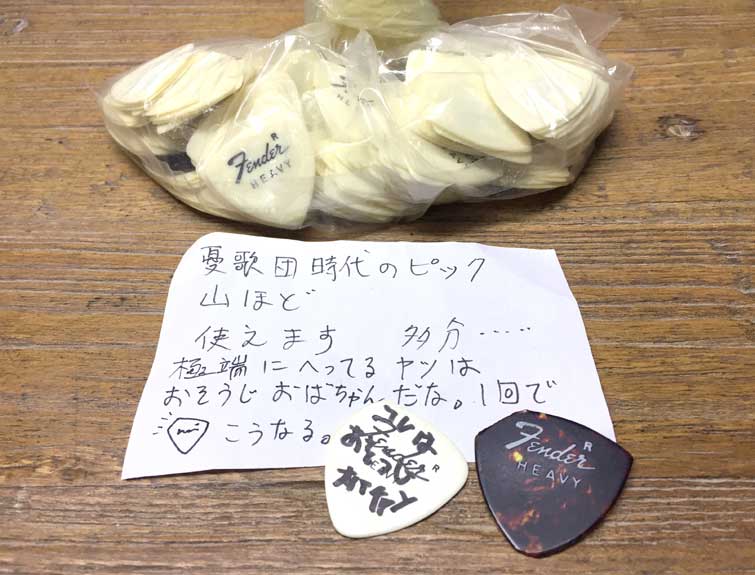 Fender
R
HEAVY
憂歌団時代のピック
山ほど
使えます 多分……
極端にへってるヤツは
おそうじおばちゃんだな。1回で
こうなる。
コレは
Fender
R
Fender
R
HEAVY